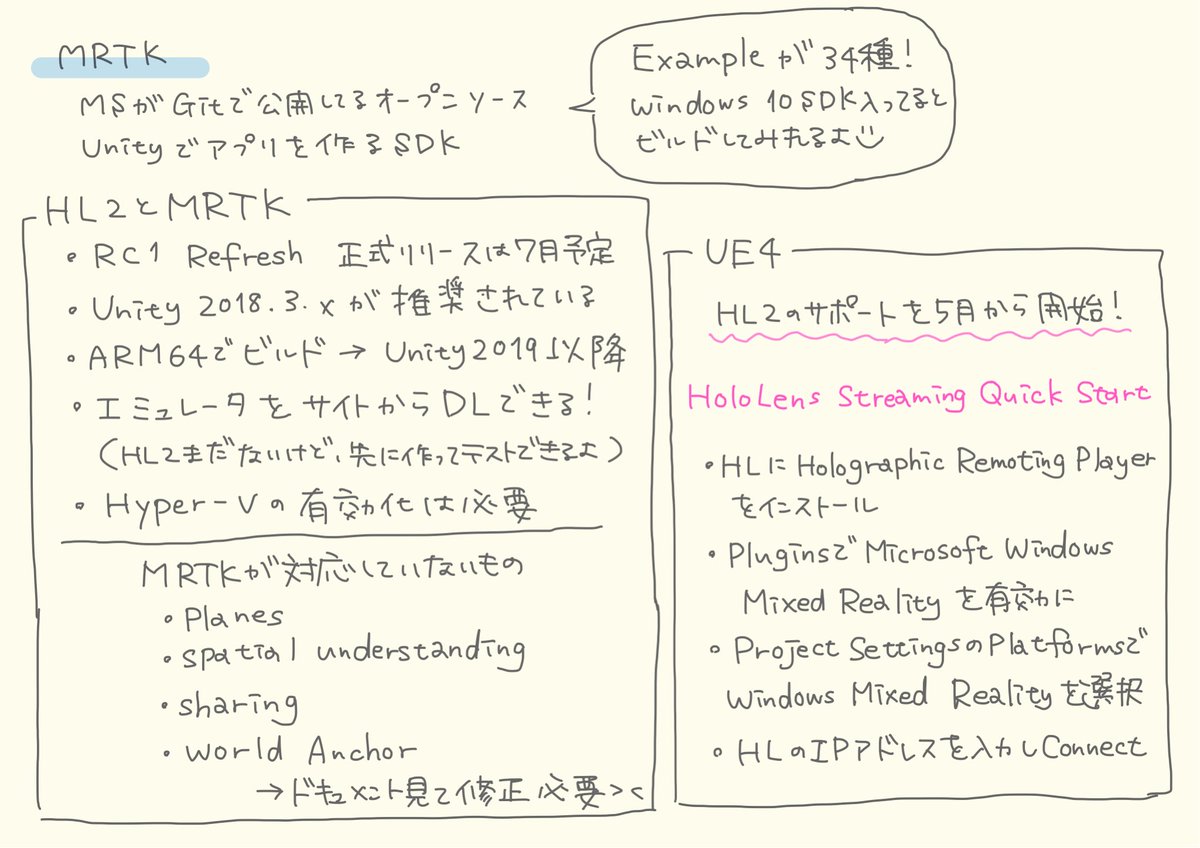 MRTK
MSがGitで公開してるオープンソース
UnityでアプリをÂ作るSDK
Exampleが34種!
windows 10 SDK入ってると
ビルドしてみれるよ
HL2とMRTK
・RC1 Refresh 正式リリースは7月予定
・Unity 2018.3.xが推奨されている
・ARM64でビルド→Unity2019以降
・エミュレータをサイトからDLできる!
(HL2まだないけど、先に作ってテストできるよ)
・Hyper-Vの有効化は必要
MRTKが対応していないもの
・Planes
・spatial understanding
・sharing
・World Anchor
→ドキュメント見て修正必要><
UE4
HL2のサポートを5月から開始!
HoloLens Streaming Quick Start
・HLにHolographic Remoting Player
をインストール
・PluginsでMicrosoft Windows
Mixed Realityを有効に
・Project SettingsのPlatformsで
Windows Mixed Realityを選択
・HLのIPアドレスを入力しConnect